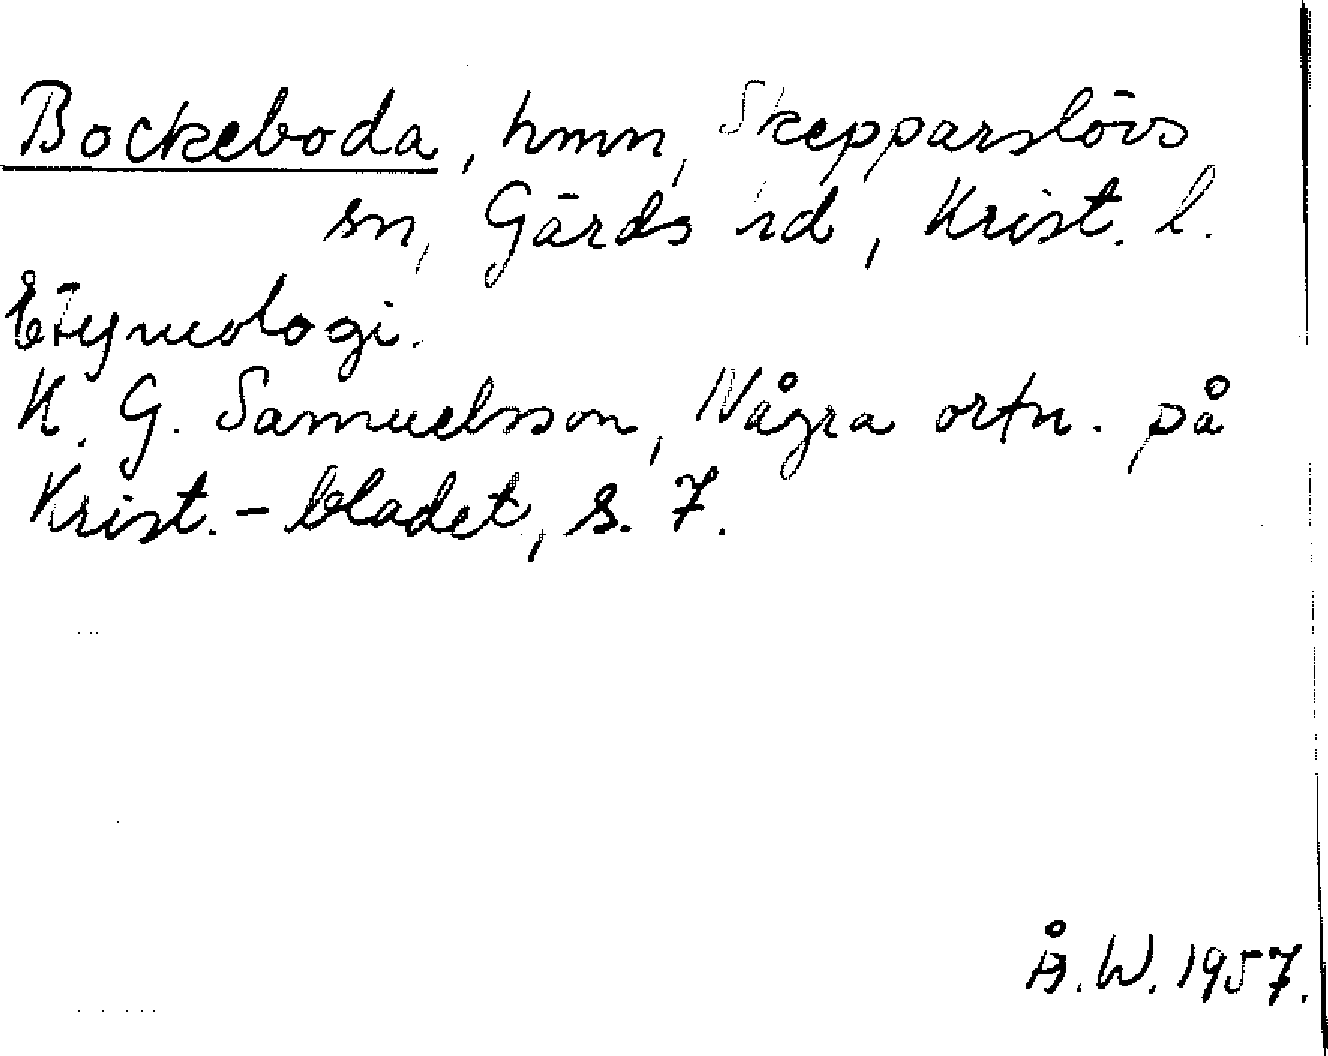 Bockeboda, hmn, Skepparslövs
sn, Gärds hd, Krist. l.
Etymologi.
K. G. Samuelsson, Några ortn. på
Krist.-bladet, s. 7.
Å.W. 1957.